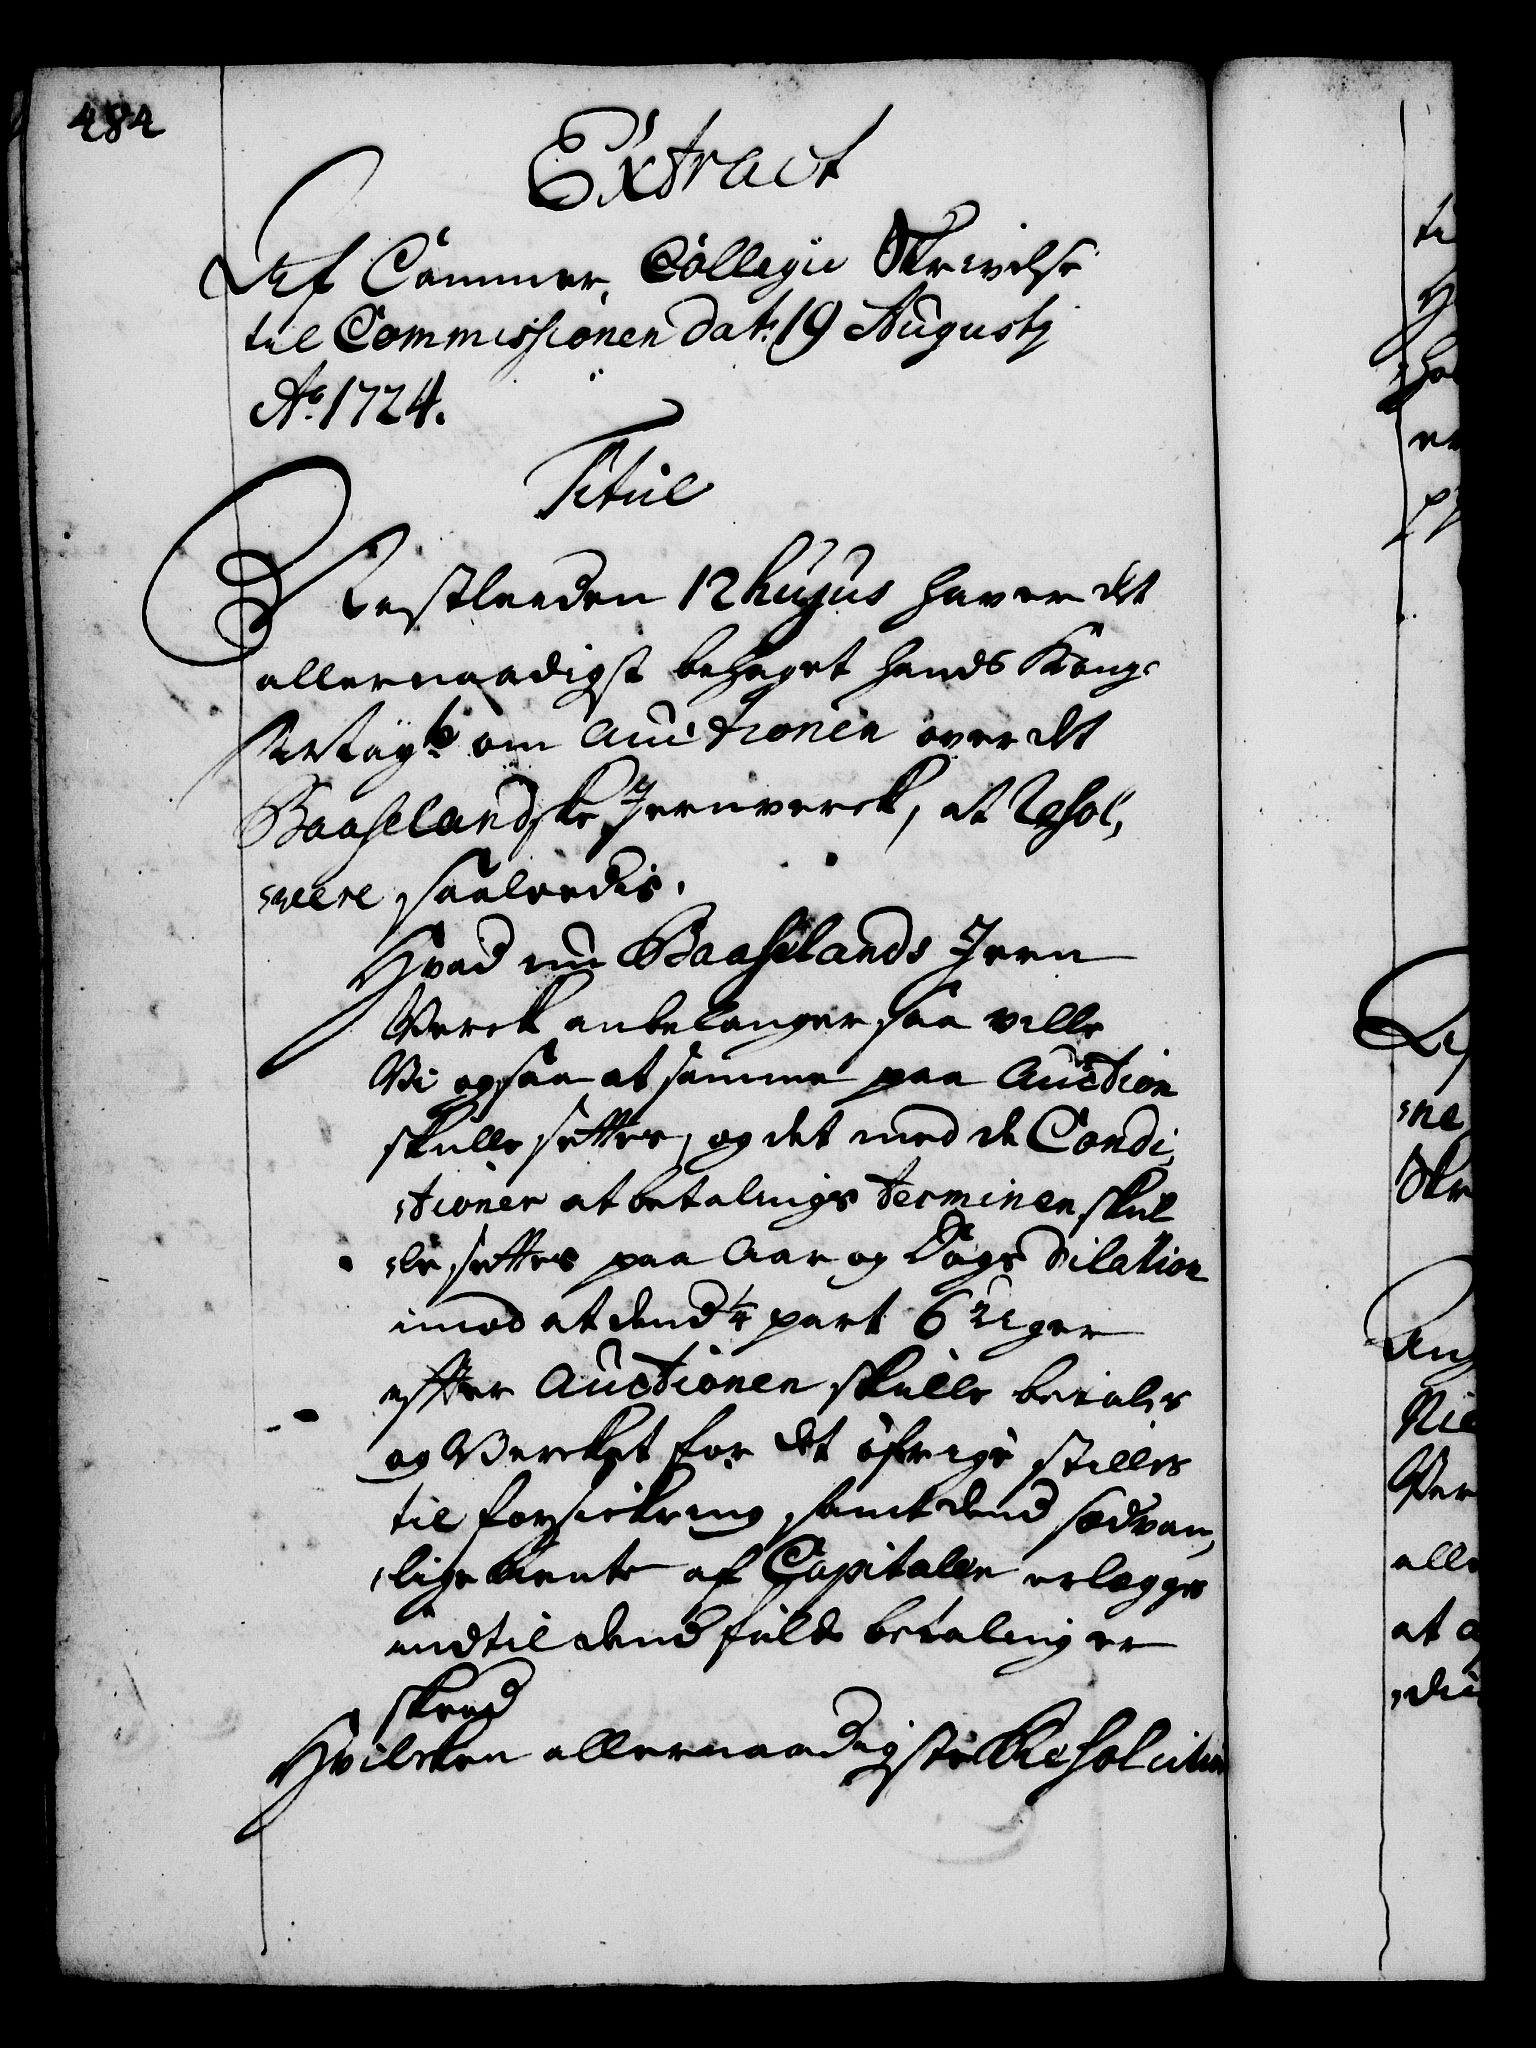 484
Extract
Af Cammer, Collegii Skrivelse
til Commissionen dat: 19 Augustj
Ao: 1724.
Titul
Nestleeden 12 hujus haver det
allernaadigst behaget hands Kong:
Maytt: om Auctionen over det
Baaselandske Jernverck, at Resol,
,vere saaledis.
Hvad nu Baaselands Jern
Verck anbelanger, saa ville
Vi ogsaa at samme paa Auction
skulle settes, og det med de Condi,
,tioner at betalings terminen skul
,le settes paa Aar og Dags Dilation
imod at dend 1/4 part 6 Uger
efter Auctionen skulle betales
og Vercket for det öfrige stilles
til forsickring, samt dend sædvan,
,lige Rente af Capitalen erlegges
indtil dend fulde betaling er
skeed
Hvilcken allernaadigste Resolution